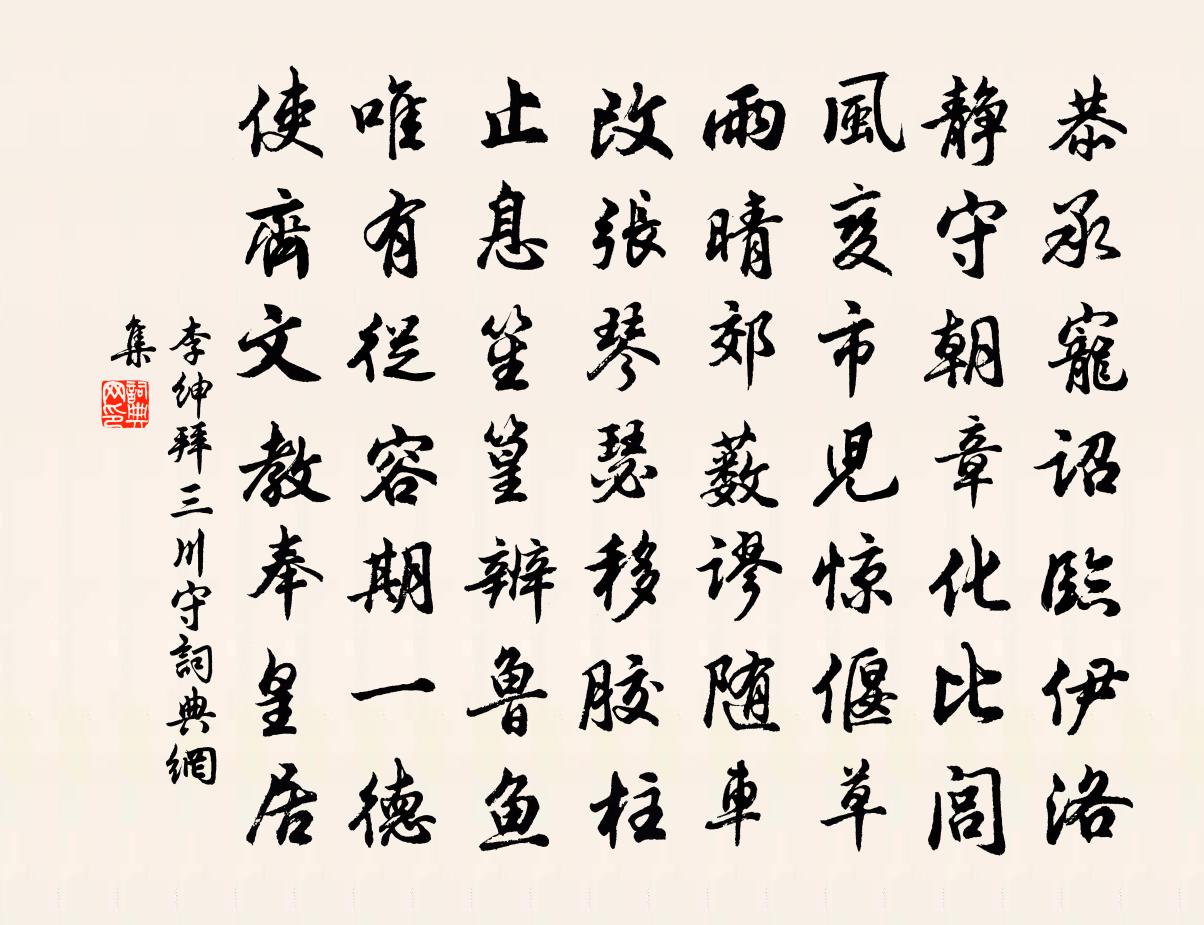 恭承寵詔臨伊洛
靜守朝章化比閭
風變市兒惊偃草
雨晴郊藪謬随車
改張琴瑟移胶柱
止息笙篁辨魯鱼
唯有從容期一德
使齊文教奉皇居
李紳拜三川守詞典網
集
詞典网印